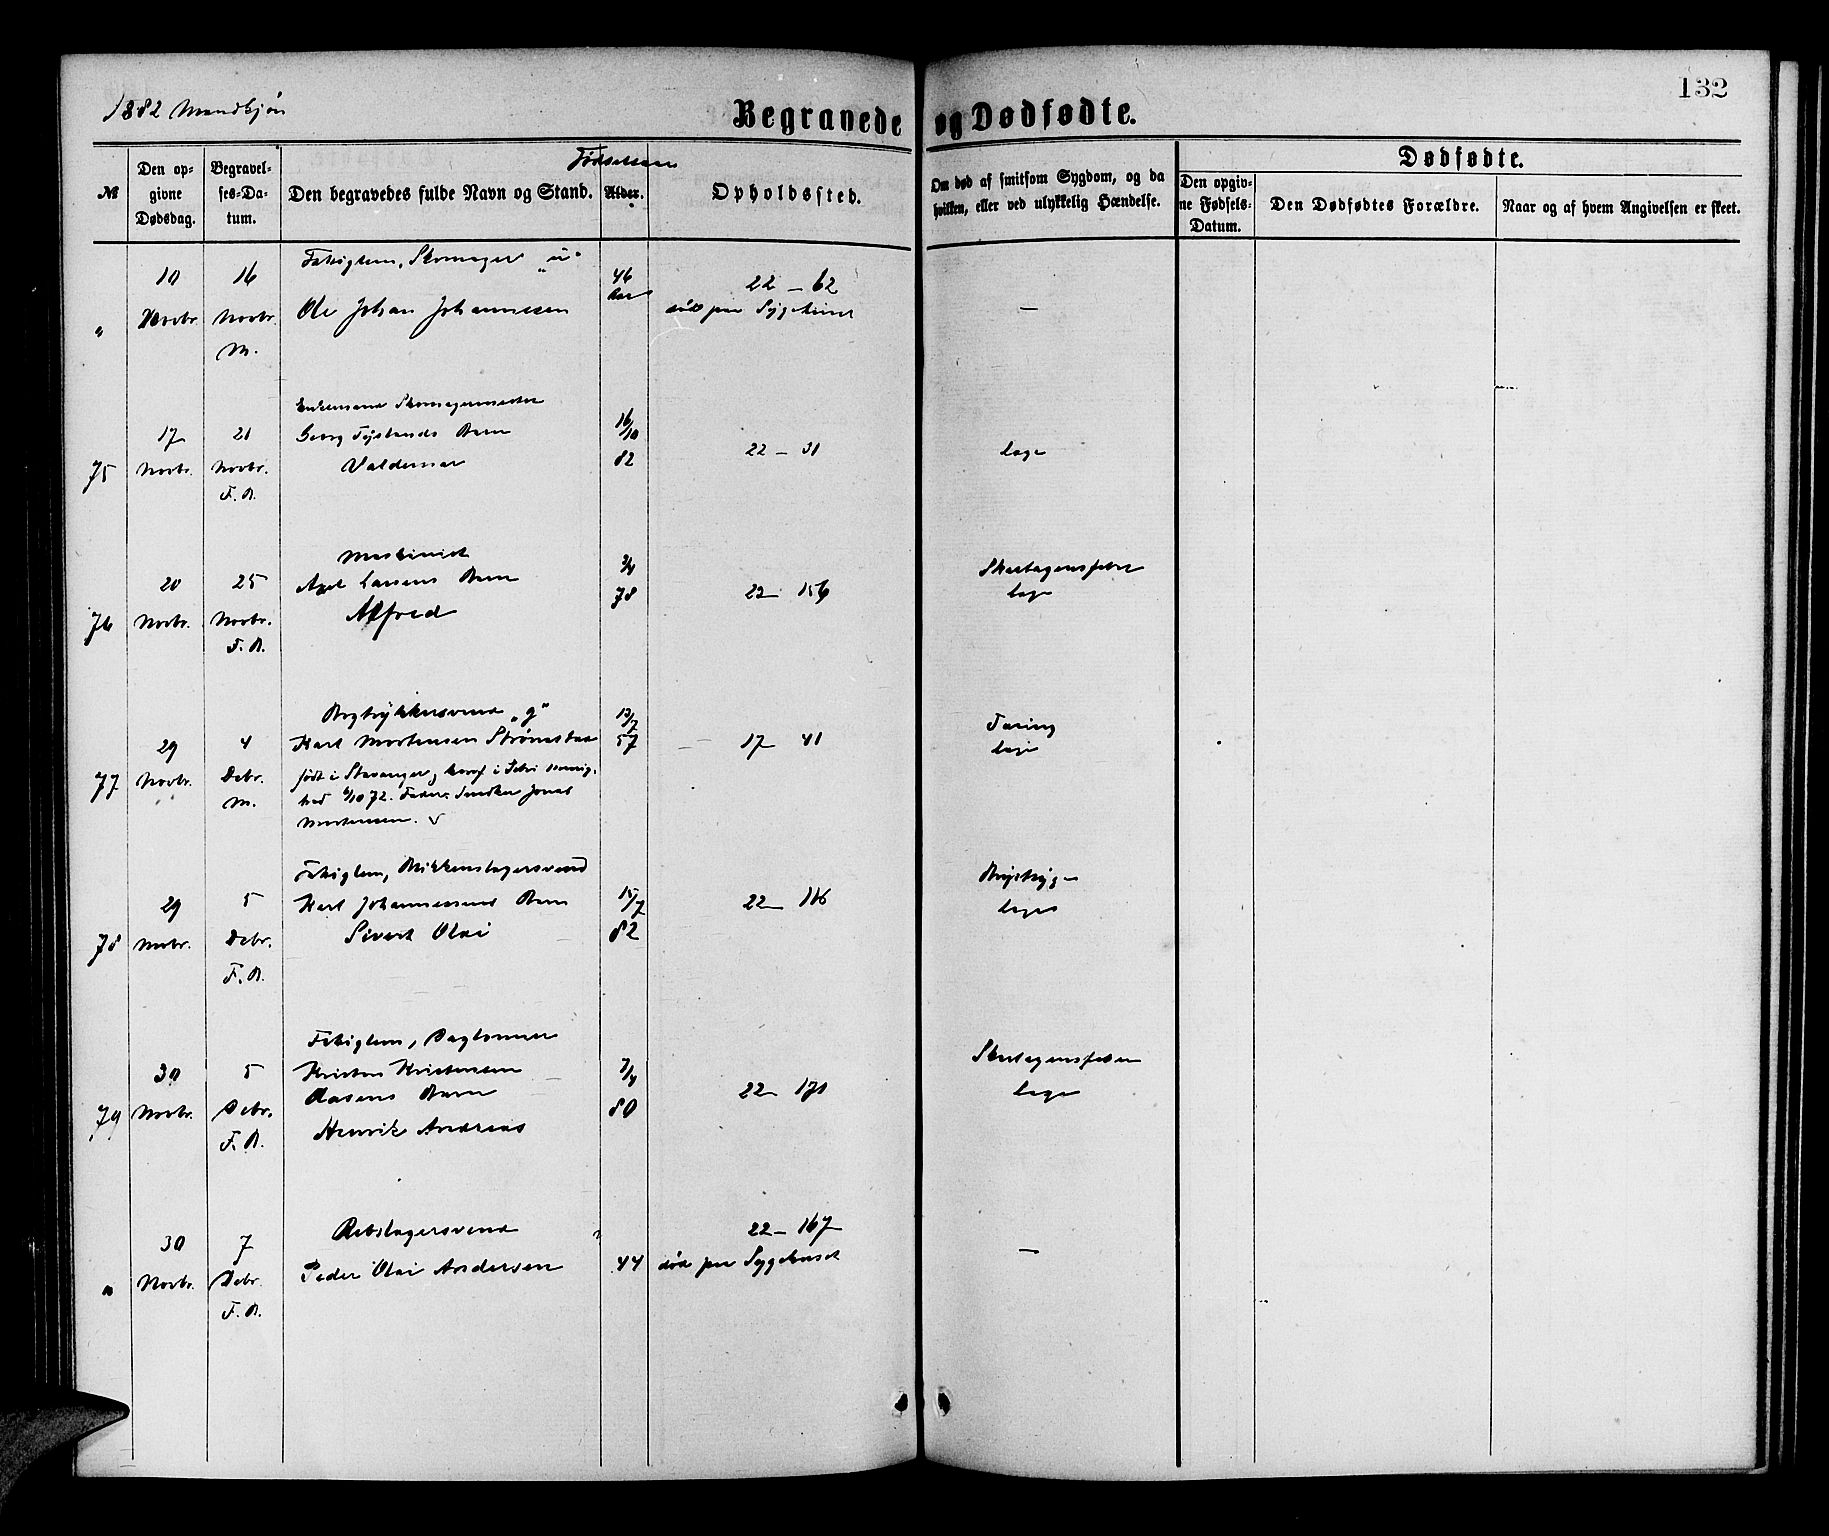 132
1882 Mandkjøn
Begravede og Dødfødte.
№
Den op-
givne
Dødsdag.
Begravel-
ses-Da-
tum.
Den begravedes fulde Navn og Stand.
Alder.
Opholdssted.
Om død af smitsom Sygdom, og da
hvilken, eller ved ulykkelig Hændelse.
Dødfødte.
Den opgiv-
ne Fødsels-
Datum.
Den Dødfødtes Forældre.
Naar og af hvem Angivelsen er skeet.
"
10
Novbr.
16
Novbr.
M.
Fattiglem, Skomager "u"
Ole Johan Johannessen
46
Aar
22 - 62
død paa Sygehuset
—
75
17
Novbr.
21
Novbr.
F. A.
Enkemand Skomagermester
Georg Barn
Valdemar
16/10
82
22 - 31
Læge
76
20
Novbr.
25
Novbr.
F. A.
Maskinist
Axel Larsens Barn
Alfred
78
22 - 156
Skarlagensfeber
Læge
77
29
Novbr.
4
Debr.
M.
Bogtrykkersvend "g"
Karl Mortensen
født i Stavanger, konf i Petri menig-
hed 6/10 72. Fader: Snedker Jonas
Mortensen.
13/7
57
17 - 41
Tæring
Læge
78
29
Novbr.
5
Debr.
F. A.
Fattiglem, Blikkenslagersvend
Karl Johannessens Barn
Sivert Olai
15/7
82
22 - 116
Læge
79
30
Novbr.
5
Debr.
F. A.
Fattiglem, Daglønner
Kristen Kristensen
Aasens Barn
Henrik Andreas
80
22 - 171
Skarlagensfeber
Læge
"
30
Novbr.
7
Debr.
F. A.
Rebslagersvend
Peder Olai Andersen
44
22 - 167
død paa Sygehuset
—